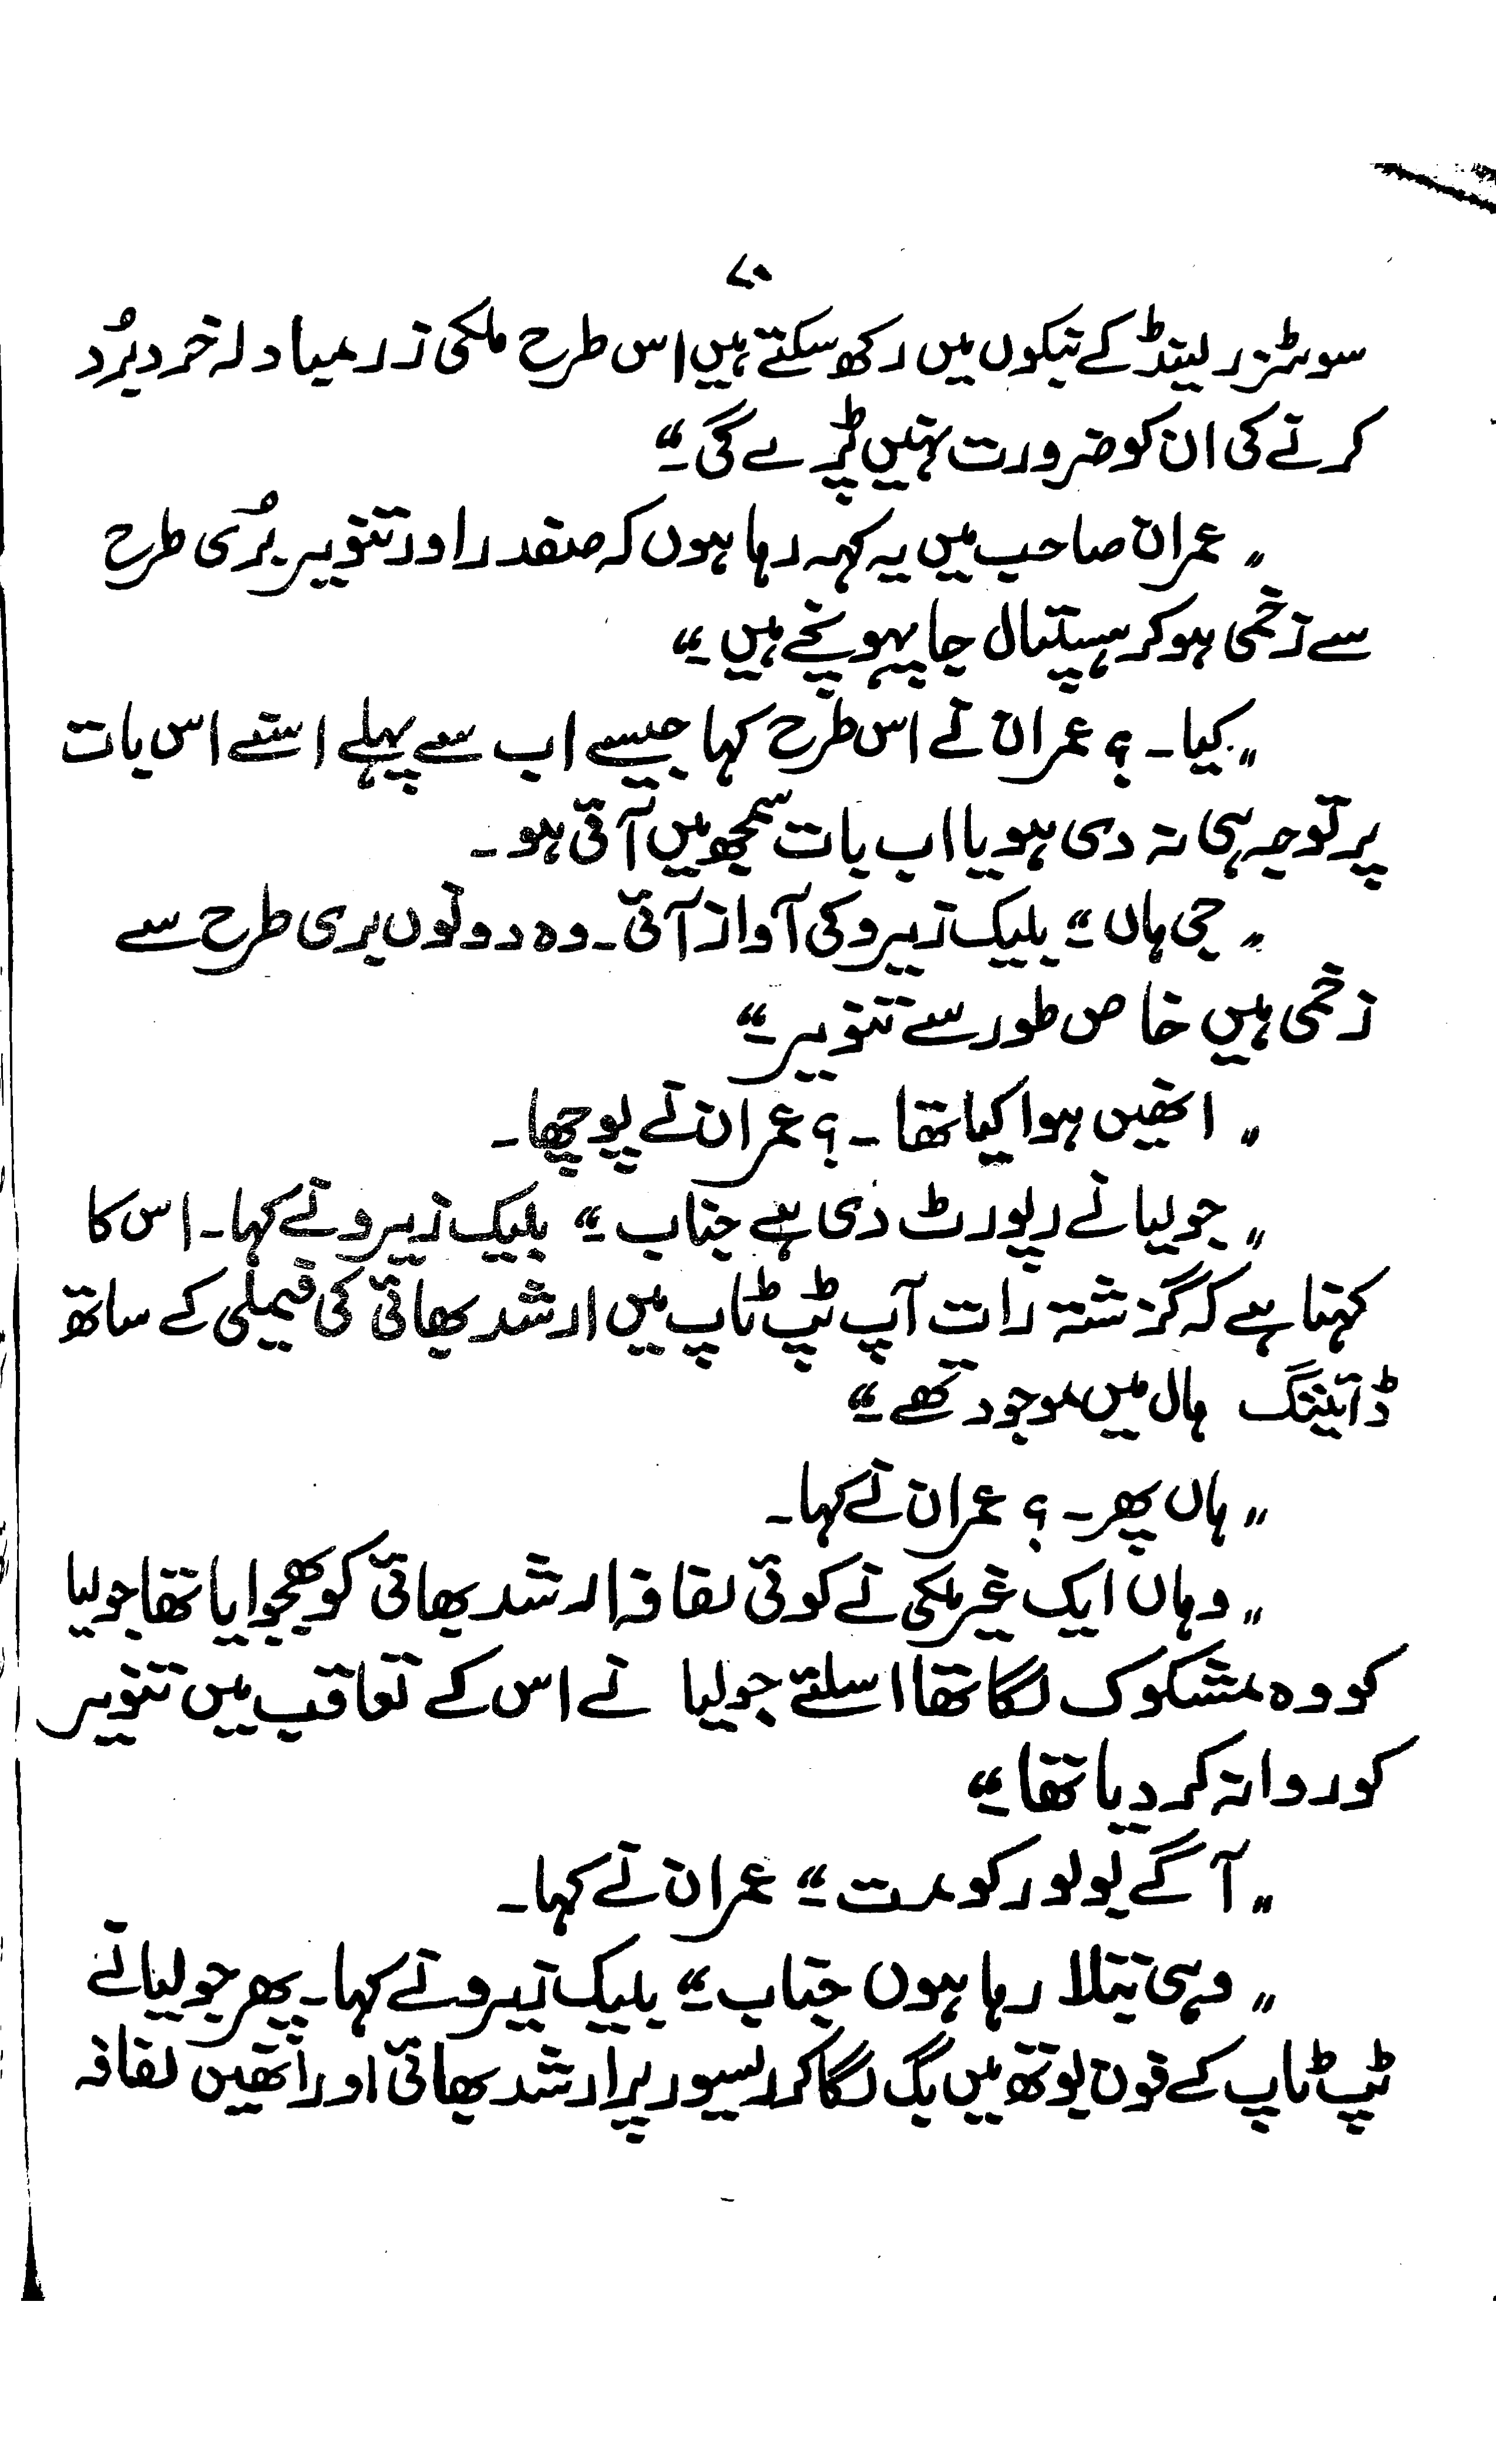 ۷۰
سوئٹزرلینڈ کے بنکوں میں رکھ سکتے ہیں اس طرح ملکی زرمبادلہ خرد برُد
کرنے کی ان کو ضرورت نہیں پڑے گی۔"
"عمران صاحب میں یہ کہہ رہا ہوں کہ صفدر اور تنویر برُی طرح
سے زخمی ہو کر ہسپتال جا پہونچے ہیں۔"
"کیا۔؟ عمران نے اس طرح کہا جیسے اب سے پہلے اسنے اس بات
پر توجہ ہی نہ دی ہو یا اب بات سمجھ میں آئی ہو۔
"جی ہاں۔" بلیک زیرو کی آواز آئی۔ وہ دونوں بری طرح سے
زخمی ہیں خاص طور سے تنویر۔"
"انھیں ہوا کیا تھا۔؟ عمران نے پوچھا۔
"جولیا نے رپورٹ دی ہے جناب۔" بلیک زیرو نے کہا۔ اس کا
کہنا ہے کہ گزشتہ رات آپ ٹپ ٹاپ میں ارشد بھائی کی فیملی کے ساتھ
ڈائیننگ ہال میں موجود تھے۔"
"ہاں پھر۔؟ عمران نے کہا۔
"وہاں ایک غیرملکی نے کوئی لفافہ ارشد بھائی کو بھجوایا تھا جولیا
کو وہ مشکوک لگا تھا اسلئے جولیا نے اس کے تعاقب میں تنویر
کو روانہ کر دیا تھا۔"
"آگے بولو رکو مت۔" عمران نے کہا۔
"وہی بتلا رہا ہوں جناب۔" بلیک زیرو نے کہا۔ پھر جولیا نے
ٹپ ٹاپ کے فون بوتھ میں بگ لگا کر ریسیور پر ارشد بھائی اور انھیں لفافہ